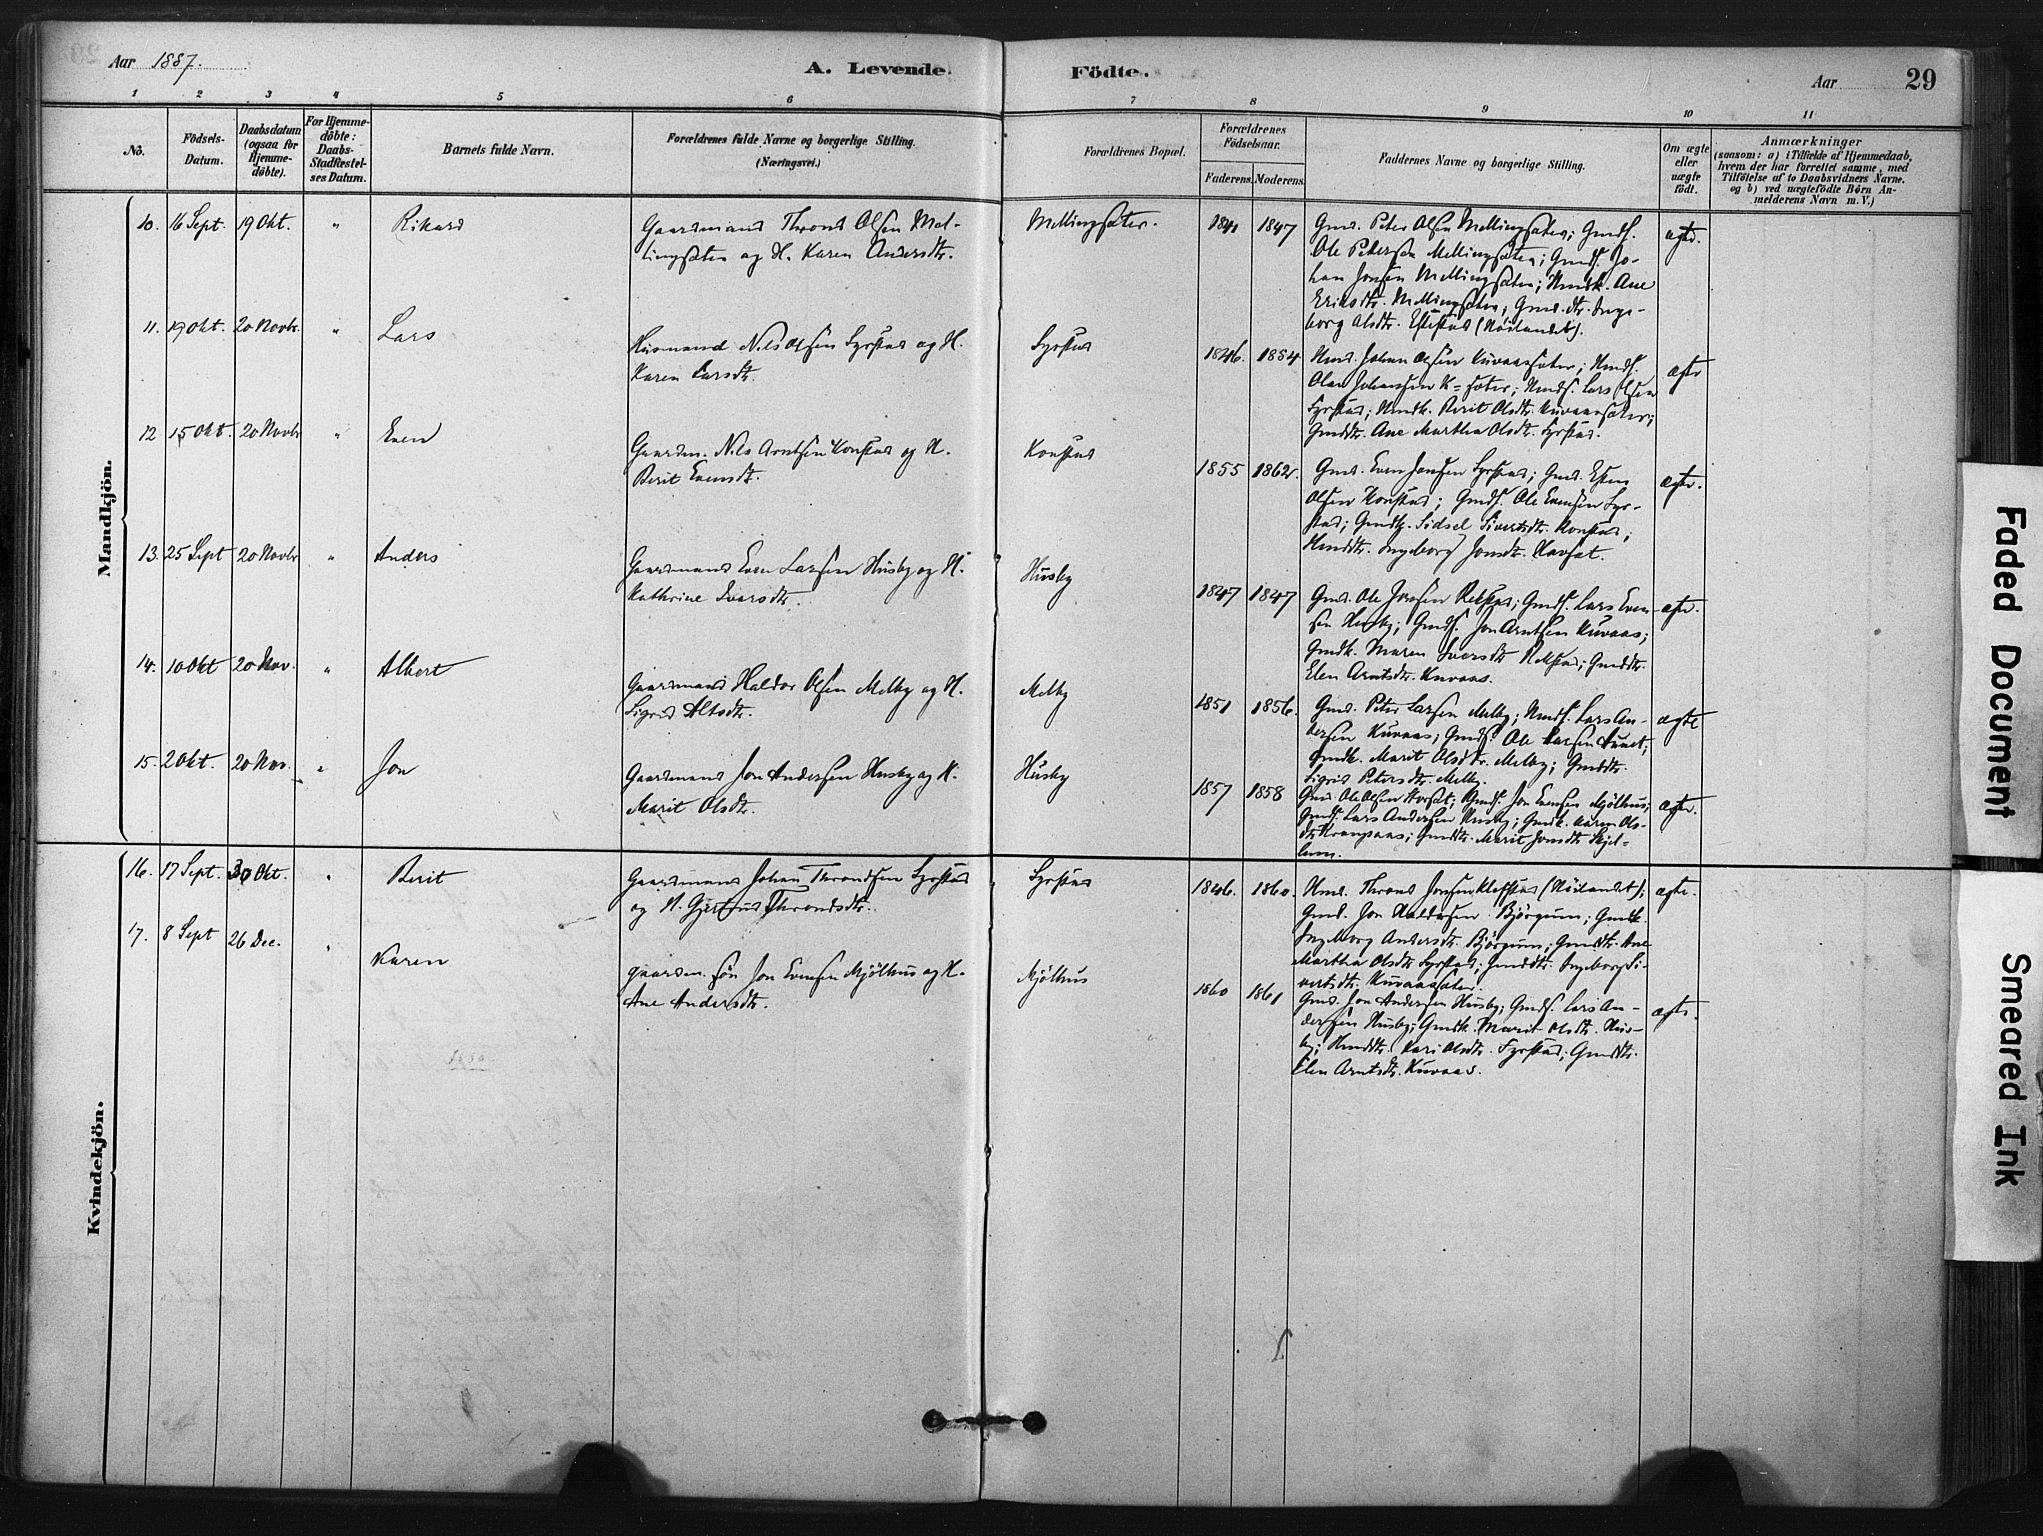 Aar 1887.
A. Levende Födte.
Aar
29
1 2 3 4 5 6 7 8 9 10 11
No.
Födsels-
Datum.
Daabsdatum
(ogsaa for
Hjemme-
döbte).
For Hjemme-
döbte:
Daabs-
Stadfæstel-
ses Datum.
Barnets fulde Navn.
Forældrenes fulde Navne og borgerlige Stilling.
(Næringsvei.)
Forældrenes Bopæl.
Forældrenes
Födselsaar.
Faderens. Moderens.
Faddernes Navne og borgerlige Stilling.
Om ægte
eller
uægte
födt.
Anmærkninger
(saasom: a) i Tilfælde af Hjemmedaab,
hvem der har forrettet samme, med
Tilföielse af to Daabsvidners Navne.
og b) ved uægtefödte Börn An-
melderens Navn m. V.)
Mandkjön.
10. 16 Sept. 19 Okt. " Rikard
Gaardmand Thrond Olsen Mel-
lingsæter og H. Karen Andersdtr.
Mellingsæter. 1841 1847
Gmd. Peter Olsen Mellingsæter; Gmds.
Ole Petersen Mellingsæter; Gmds. Jo-
han Jonsen Mellingsæter; Hmdk. Ane
Eriksdtr. Mellingsæter; Gmd.dtr. Inge-
borg Olsdtr. (Nöilandet).
ægte.
11. 19 Okt. 20 Novbr. " Lars
Husmand Nils Olsen Syrstad og H.
Karen Larsdtr.
Syrstad 1846. 1854
Hmd. Johan Olsen Kuvaassæter; Hmds.
Olav Johansen K=sæter; Hmds. Lars Olsen
Syrstad; Hmdk. Berit Olsdtr. Kuvaassæter;
Gmddtr. Ane Martha Olsdtr. Syrstad.
ægte
12 15 Okt. 20 Novbr " Even
Gaardm. Nils Arntsen Konstad og H.
Berit Evensdtr.
Konstad 1855 1862.
Gmd. Even Jonsen Syrstad; Gmd. Esten
Olsen Konstad; Gmds. Ole Evensen Syr-
stad; Gmdk. Sidsel Sivertsdtr. Konstad;
Hmddtr. Ingeborg Jonsdtr. Havsæt.
ægte.
13. 25 Sept 20 Novbr " Anders
Gaardmand Even Larsen Husby og H.
Kathrine Ivarsdtr.
Husby 1847 1847
Gmd. Ole Jonsen Rekstad; Gmds. Lars Even-
sen Husby; Gmds. Jon Arntsen Kuvaas;
Gmdk. Maren Ivarsdtr Rekstad; Gmddtr.
Elen Arntsdtr. Kuvaas.
ægte.
14. 10 Okt 20 Nov. " Albert
Gaardmand Haldor Olsen Melby og H.
Sigrid Altsdtr.
Melby 1851 1856.
Gmd. Peter Larsen Melby; Hmds. Lars An-
dersen Kuvaas; Gmds. Ole Larsen Aunet;
Gmdk. Marit Olsdtr. Melby; Gmddtr.
Sigrid Petersdtr. Melby.
ægte
15. 2 Okt. 20 Nov. " Jon
Gaardmand Jon Andersen Husby og H.
Marit Olsdtr.
Husby 1857 1858
Gmd. Ole Olsen Havsæt; Gmds. Jon Evensen Mjölhus;
Gmds. Lars Andersen Husby; Gmdk. Karen Ols-
dtr Krangsaas; Gmddtr. Marit Jonsdtr. Skjel-
ægte.
Kvindekjön.
16. 17 Sept. 30 Okt. " Berit
Gaardmand Johan Throndsen Syrstad
og H. Gjertrud Throndsdtr.
Syrstad 1846. 1860.
Hmd. Thrond Jonsen Klefstad (Nöilandet);
Gmd. Jon Haldorsen Björgum; Gmdk.
Ingeborg Andersdtr. Björgum; Gmddtr. Ane
Martha Olsdtr Syrstad; Hmddtr. Ingeborg Si-
vertsdtr. Kuvaassæter.
ægte.
17. 8 Sept 26 Dec. " Karen
Gaardm. sön Jon Evensen Mjölhus og H.
Ane Andersdtr.
Mjölhus 1860 1861
Gmd. Jon Andersen Husby; Gmds. Lars An-
dersen Husby; Gmdk. Marit Olsdtr. Hus-
by; Hmddtr. Kari Olsdtr. Syrstad; Gmddtr.
Elen Arntsdtr. Kuvaas.
ægte.
Faded Document
Smeared Ink